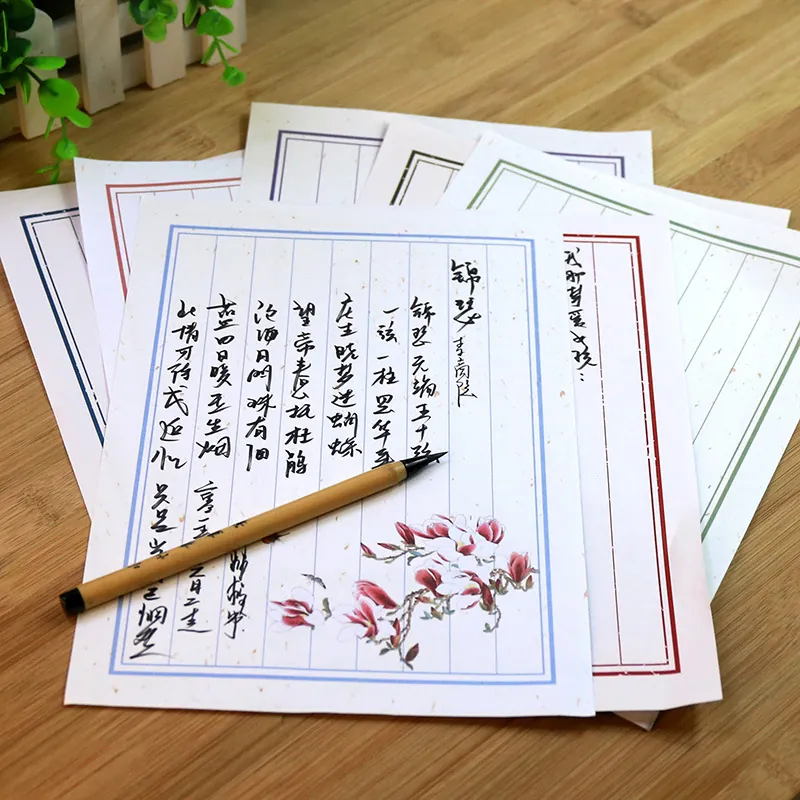 锦瑟 李商隐
锦瑟无端五十弦
一弦一柱思华年
庄生晓梦迷蝴蝶
望帝春心托杜鹃
沧海月明珠有泪
蓝田日暖玉生烟
此情可待成追忆 只是当已惘然